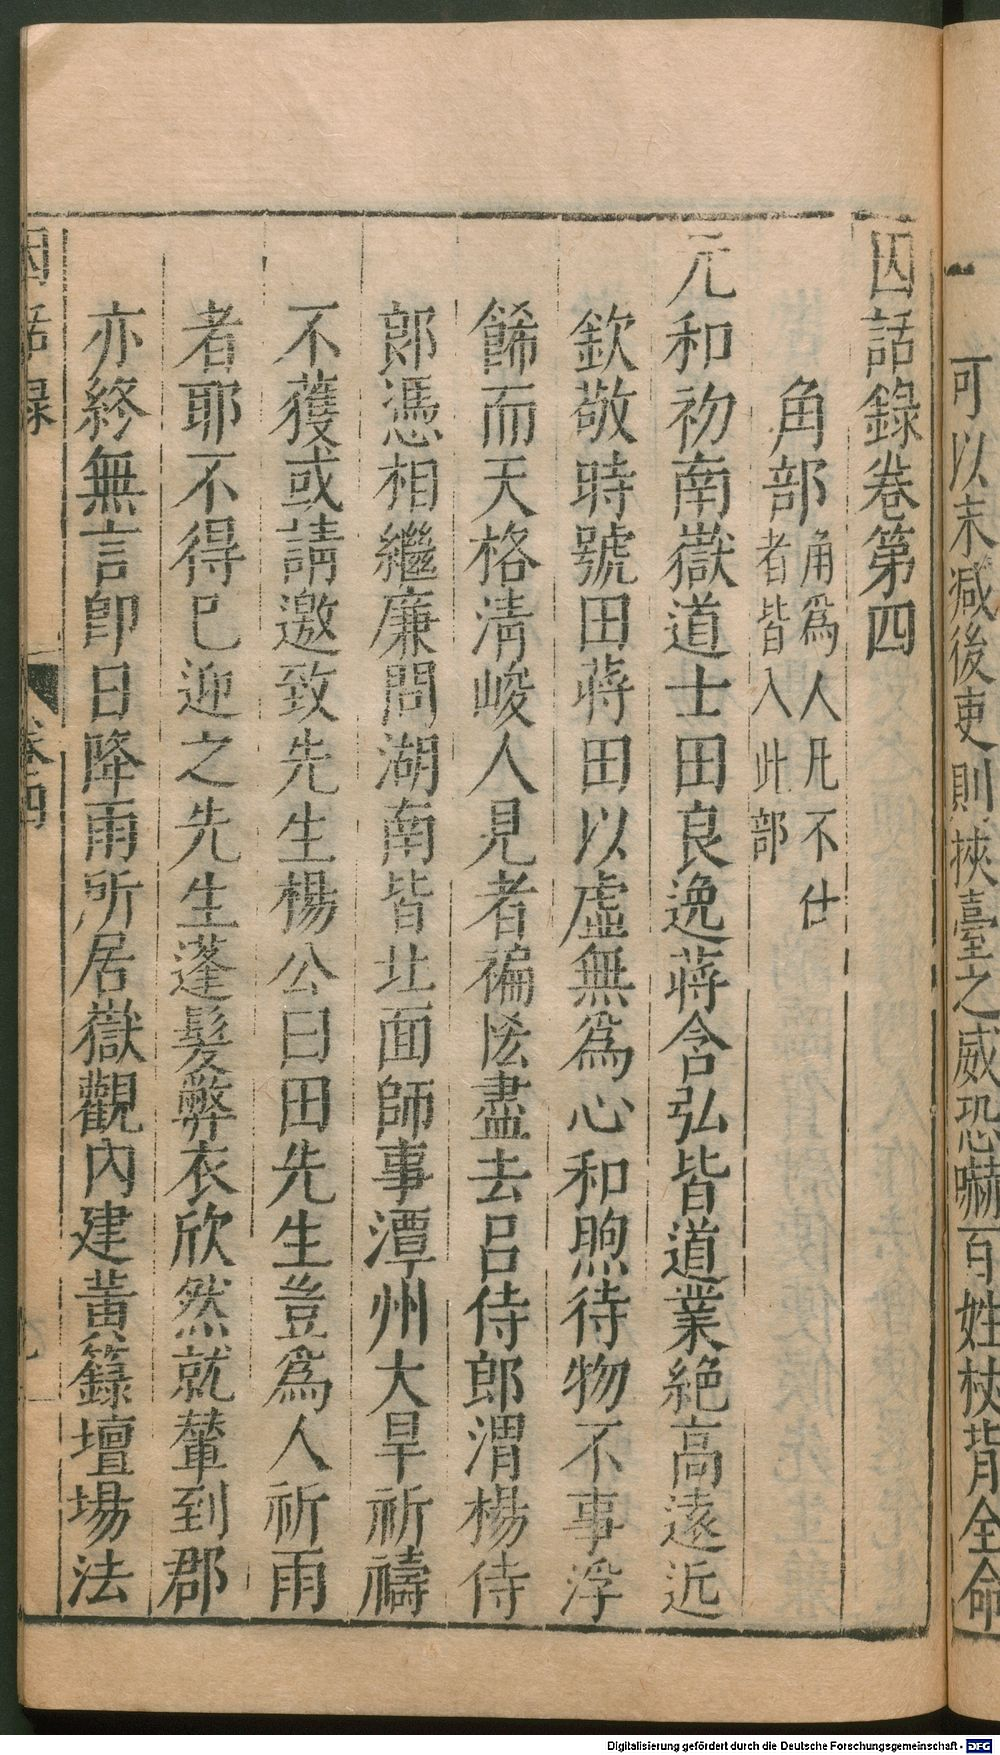 可以末减後吏則挾臺之威恐嚇百姓杖背全命
因話錄卷第四
角部 角爲人凡不仕
者皆入此部
元和初南嶽道士田良逸蔣含弘皆道業絕高遠近
欽敬時號田蔣田以虛無爲心和煦待物不事浮
餙而天格清峻人見者褊恡盡去呂侍郎渭楊侍
郎憑相繼廉問湖南皆北面師事潭州大旱祈禱
不獲或請邀致先生楊公曰田先生豈爲人祈雨
者耶不得已迎之先生蓬髮弊衣欣然就輦到郡
亦終無言卽日降雨所居嶽觀內建黃籙壇場法
因話錄
卷四
Digitalisierung gefördert durch die Deutsche Forschungsgemeinschaft - DFG